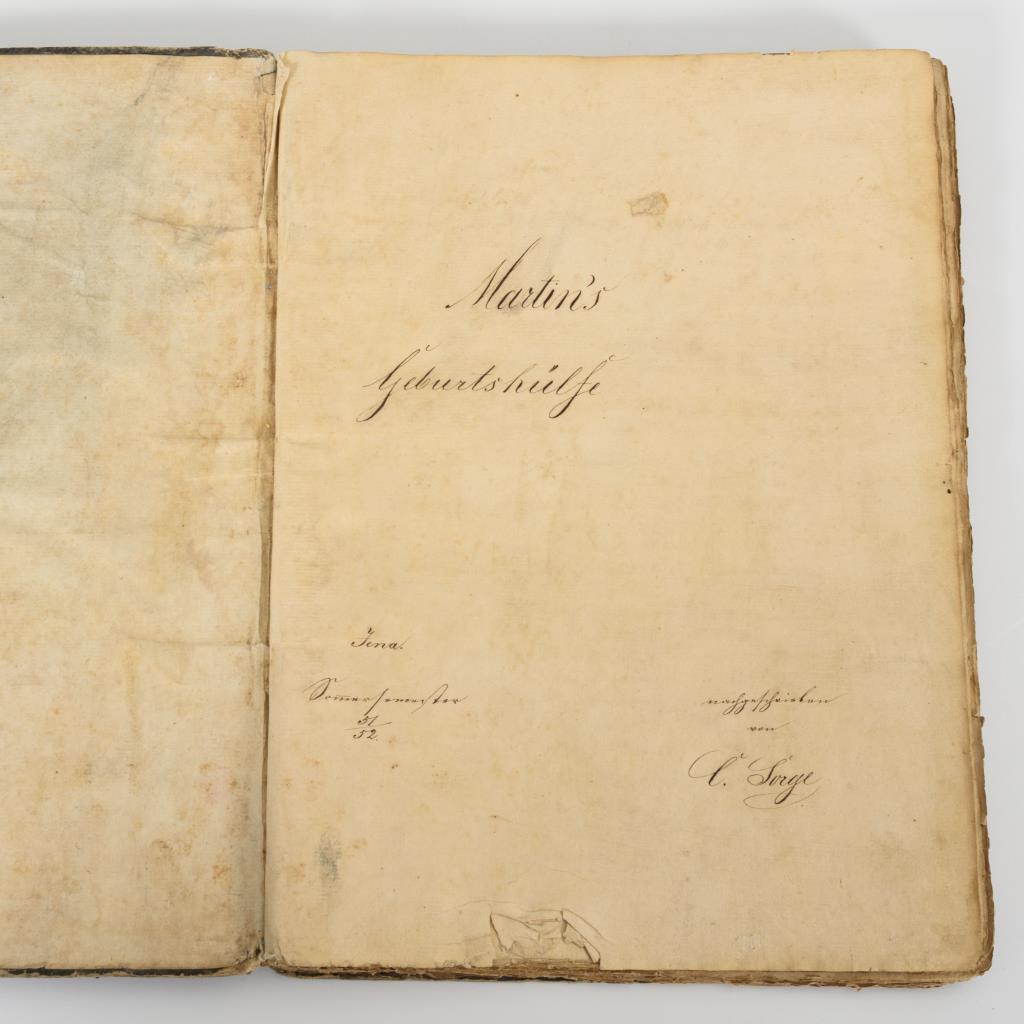 Martin's
Geburtshülfe
Jena.
Sommersemester
51/52.
nachgeschrieben
von
C. Sorge